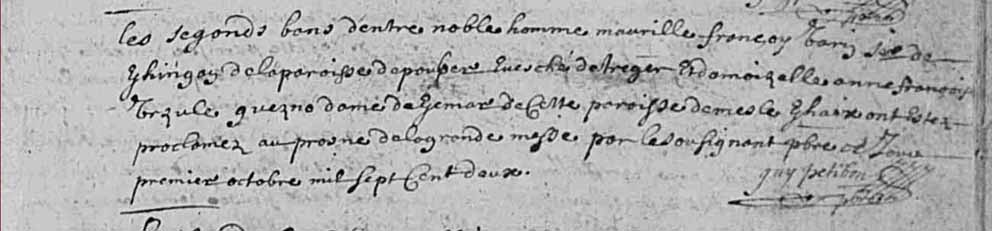 les segonds bans dentre noble homme maurille françoy Barin sr de
Khingay de la paroisse de pouper Evesché de treger Et damoizelle anne françoise
ursule guezno dame de Kemar de Cette paroisse de mesle Khaix ont Estez
proclamez au prosne de la grande messe par le sousignant pbre ce Jour
premier octobre mil sept Cent deux.
guy petibon
pbre